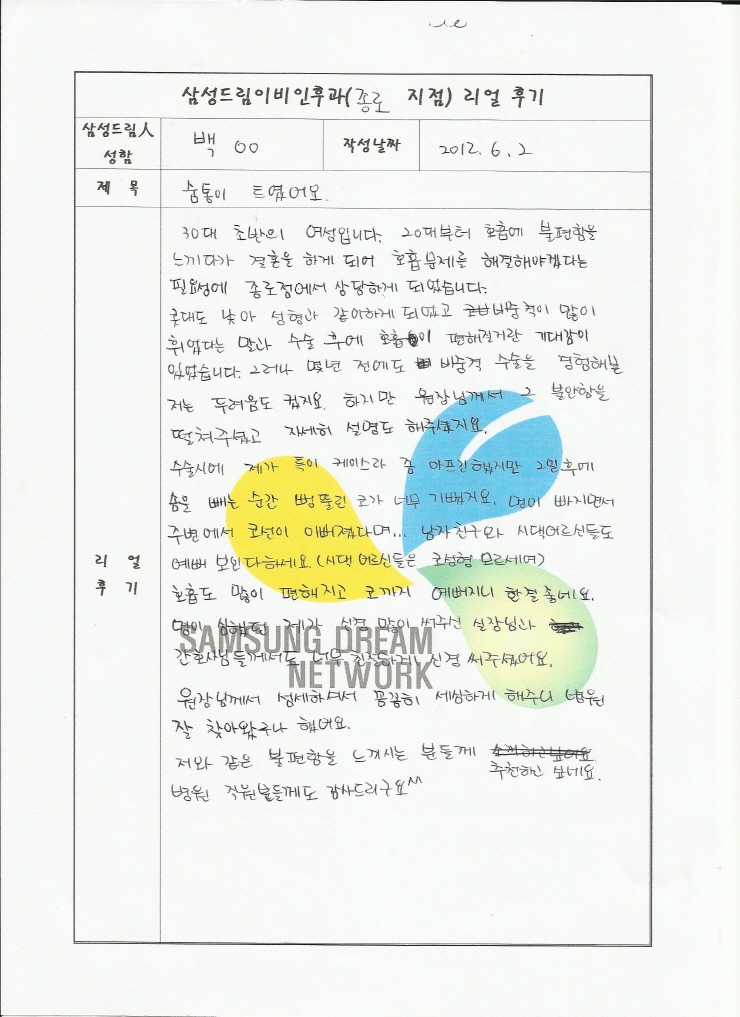 삼성드림이비인후과(종로 지점) 리얼 후기
삼성드림人
성함
백 OO
작성날짜
2012. 6. 2
제 목
숨통이 트였어요.
리 얼
후 기
30대 초반의 여성입니다. 20대부터 호흡에 불편함을
느끼다가 결혼을 하게 되어 호흡문제를 해결해야겠다는
필요성에 종로점에서 상담하게 되었습니다.
콧대도 낮아 성형과 같이하게 되었고 비중격이 많이
휘었다는 말과 수술 후에 호흡이 편해질거란 기대감이
있었습니다. 그러나 몇년 전에도 비중격 수술을 경험해본
저는 두려움도 컸지요. 하지만 원장님께서 그 불안함을
떨쳐주셨고 자세히 설명도 해주셨지요.
수술시에 제가 특이 케이스라 좀 아프긴했지만 2일후에
솜을 빼는 순간 뻥뚫린 코가 너무 기뻤지요. 멍이 빠지면서
주변에서 코선이 이뻐졌다며... 남자친구와 시댁어르신들도
예뻐 보인다하세요. (시댁 어르신들은 코성형 모르세여)
호흡도 많이 편해지고 코까지 예뻐지니 한결 좋네요.
멍이 심했던 제가 신경 많이 써주신 실장님과
간호사님들께서도 너무 친절하게 신경 써주셨어요.
원장님께서 섬세하셔서 꼼꼼히 세심하게 해주니 병원
잘 찾아왔구나 했어요.
저와 같은 불편함을 느끼시는 분들께
추천하고 보네요.
병원 직원분들께도 감사드리구요^^
SAMSUNG DREAM
NETWORK